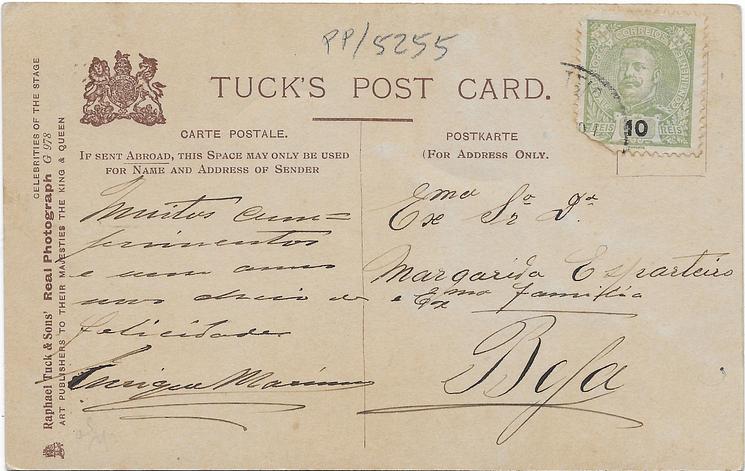 PP/5255
TUCK'S POST CARD.
CARTE POSTALE.
POSTKARTE
IF SENT ABROAD, THIS SPACE MAY ONLY BE USED
FOR NAME AND ADDRESS OF SENDER
(FOR ADDRESS ONLY.
CELEBRITIES OF THE STAGE
Raphael Tuck & Sons' Real Photograph G 978
ART PUBLISHERS TO THEIR MAJESTIES THE KING & QUEEN
CORREIOS
REIS 10 REIS
Muitos cum=
primentos
e um anno
novo cheio de
felicidades
Enrique
Exma Sra Da
Margarida Esparteiro
e Exma familia
Beja